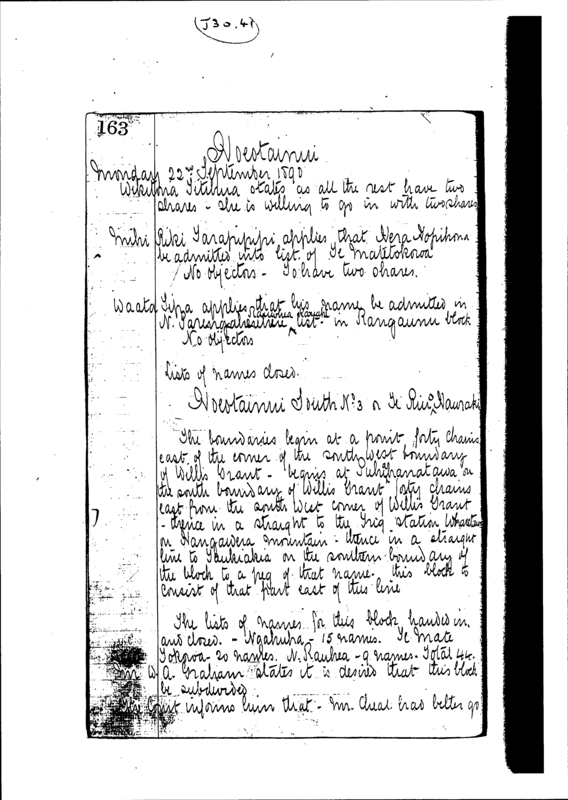 J30.41
163
Hoeotainui
Monday 22nd September 1890
states as all the rest have two
shares - she is willing to go in with two shares
Mihi Riki Tarapipipi applies that Hera Hopihona
be admitted into list of Te Matetokoroa
No objectors - To have two shares.
Waata Tipa applies that his name be admitted in
N. list - in Rangaunu block
No objectors
Lists of names closed.
Hoeotainui South No 3 or Te Hauraki
The boundaries begin at a point forty chains
east of the corner of the south West boundary
of Willis Grant - begins at on
the south boundary of Willis Grant forty chains
east from the South West corner of Willis Grant
- thence in a straight to the Trig station
on Hangawera mountain - thence in a straight
line to on the southern boundary of
the block to a peg of that name. This block to
consist of that part east of this line
The lists of names for this block handed in
and closed. - Ngahuha - 15 names. Te Mate
Tokoroa - 20 names. N. Rauhea - 9 names. Total 44.
Mr W. A. Graham states it is desired that this block
be subdivided.
The Court informs him that - Mr. Cheal had better go